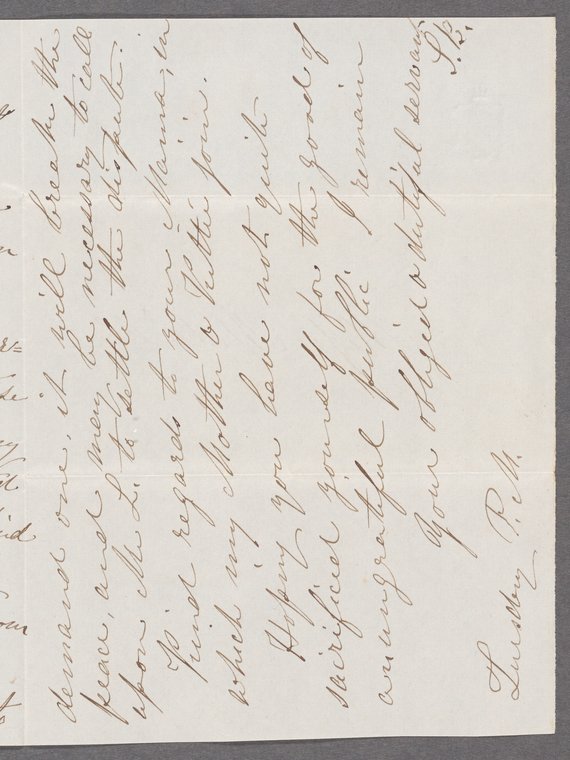 demand one, it will break the
peace, and may be necessary to call
upon Mr L. to settle the dispute.
Kind regards to your Mama, in
which my Mother & Kittie join.
Hoping you have not quite
sacrificed yourself for the good of
an ungrateful public I remain
Your obliged & dutiful servant
S.B.
Tuesday P.M.